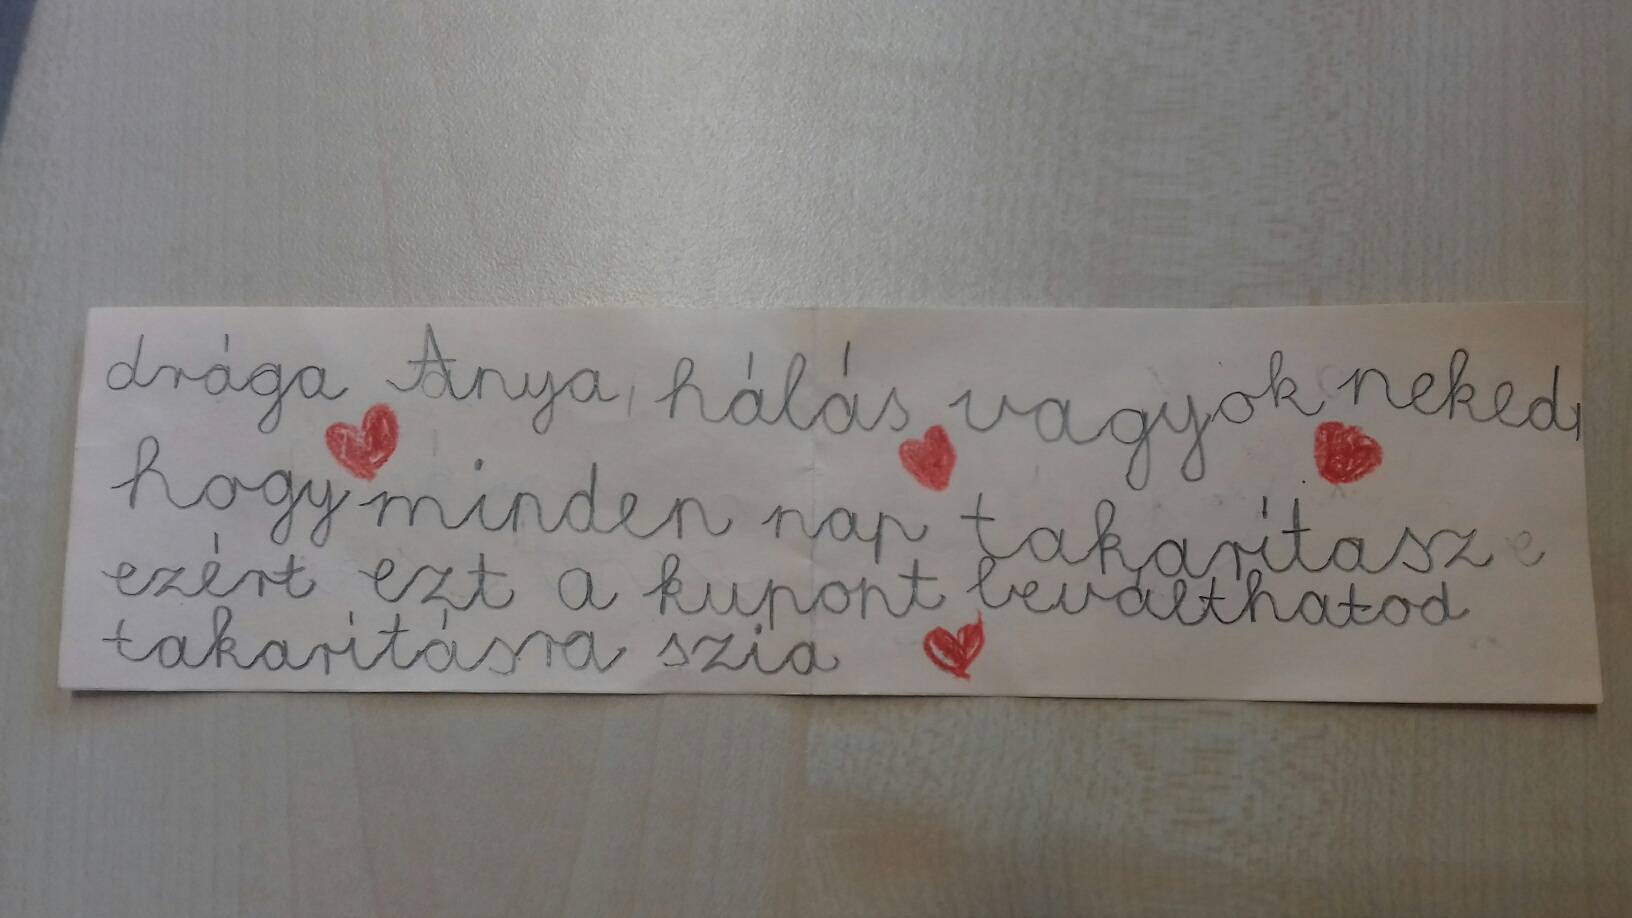 drága Anya, hálás vagyok neked,
hogy minden nap takarítasz
ezért ezt a kupont beválthatod
takarításra szia